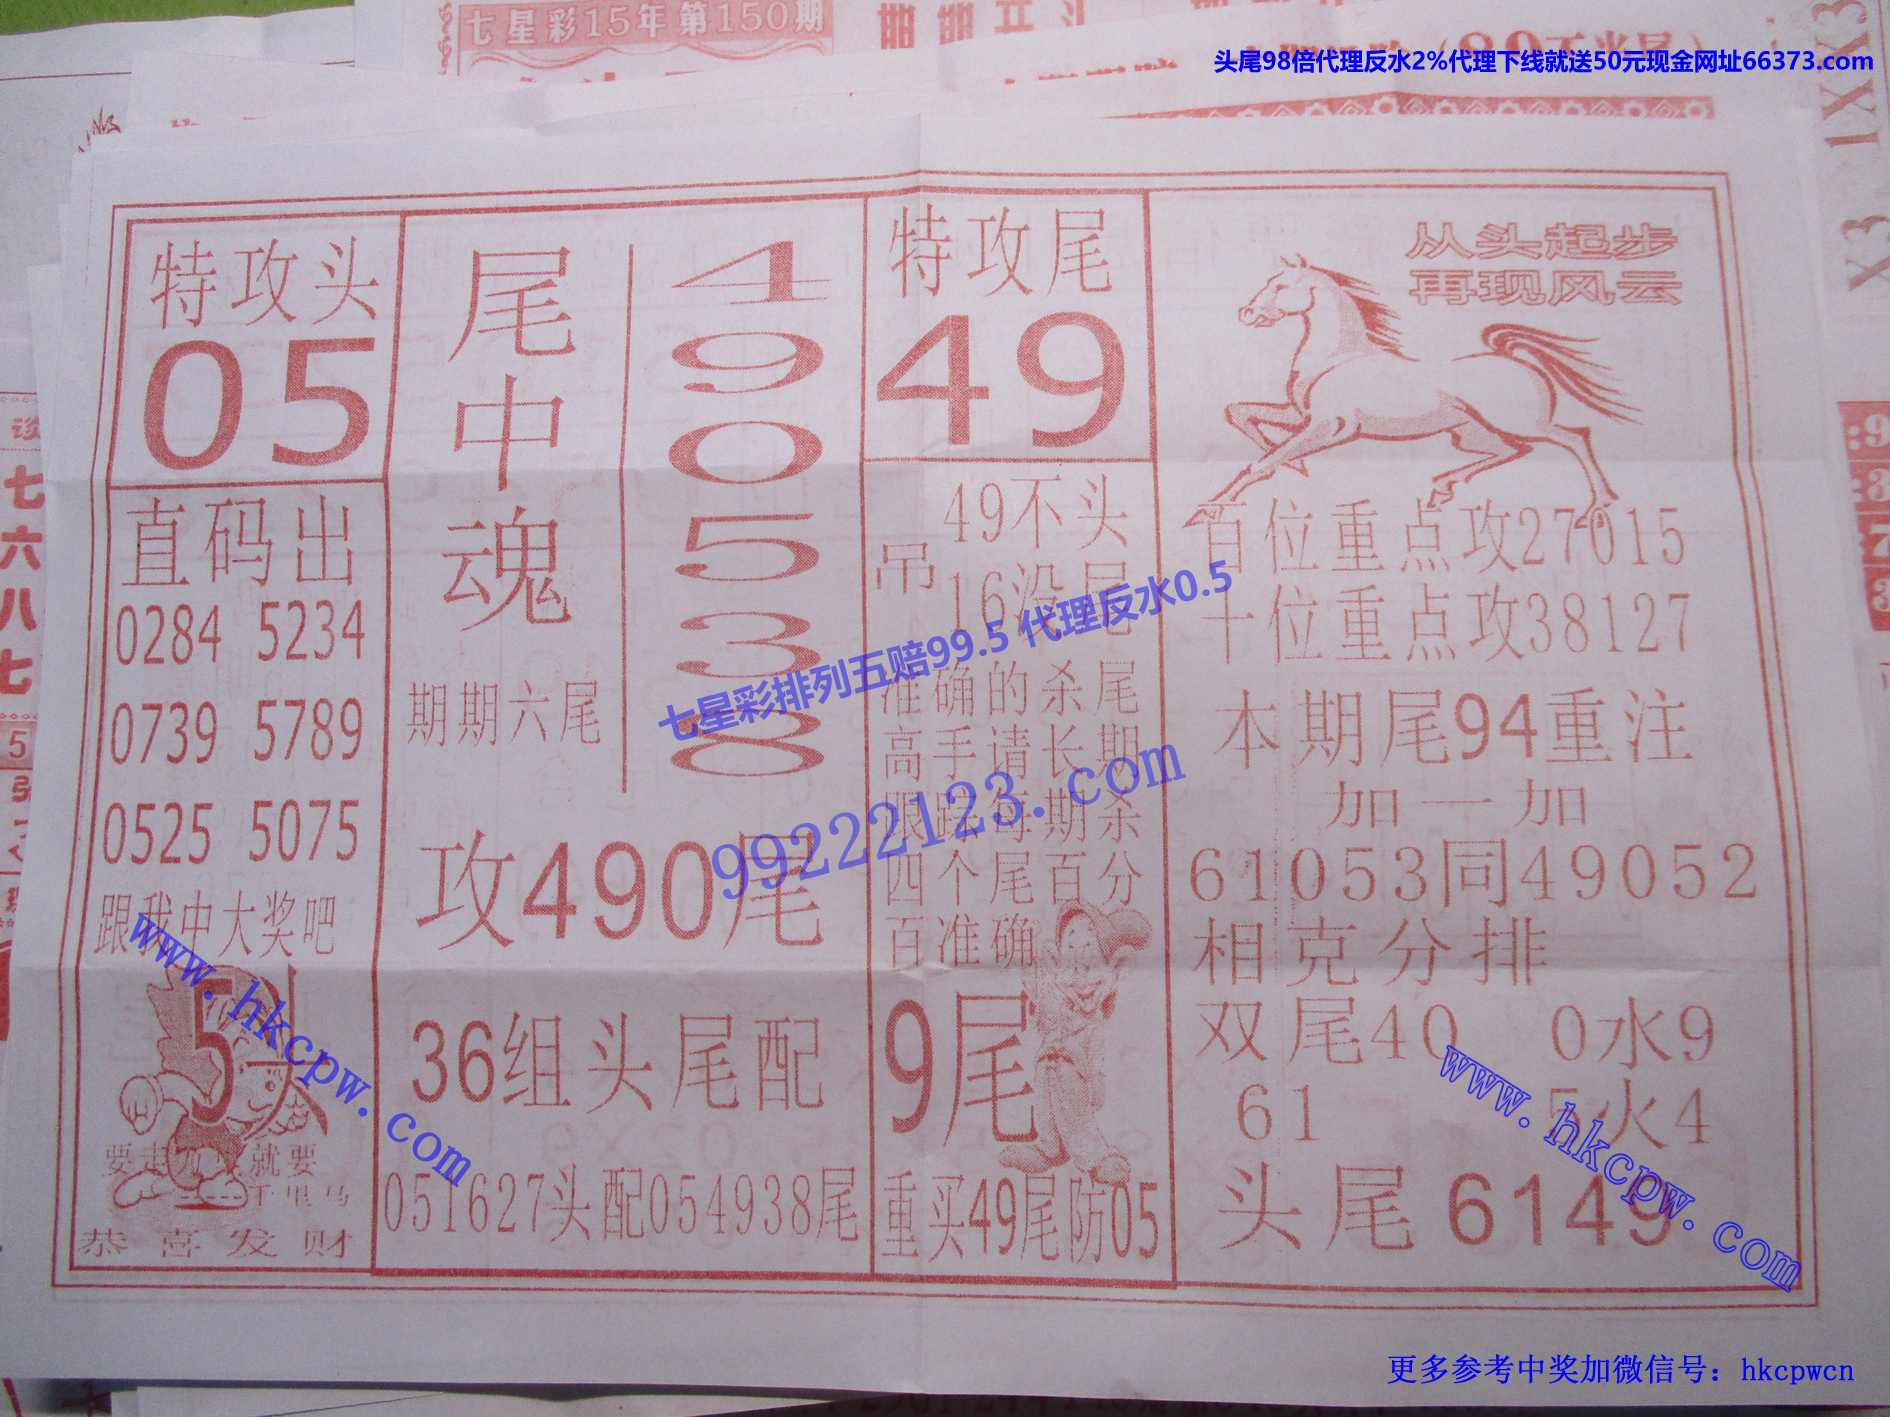 七星彩15年第150期
头尾98倍代理反水2%代理下线就送50元现金网址66373.com
特攻头
05
直码出
0284 5234
0739 5789
0525 5075
跟我中大奖吧
5头
恭喜发财
尾中魂
490538
期期六尾
攻490尾
36组头尾配
051627头配054938尾
特攻尾
49
吊
49不头
16没尾
准确的杀尾
高手请长期
跟踪每期杀
四个尾百分
百准确
9尾
重买49尾防05
从头起步
再现风云
百位重点攻27015
十位重点攻38127
本期尾94重注
加一加
61053同49052
相克分排
双尾40 0水9
61 5火4
头尾6149
七星彩排列五赔99.5 代理反水0.5
99222123.com
www.hkcpw.com
www.hkcpw.com
更多参考中奖加微信号：hkcpwcn
七六八七